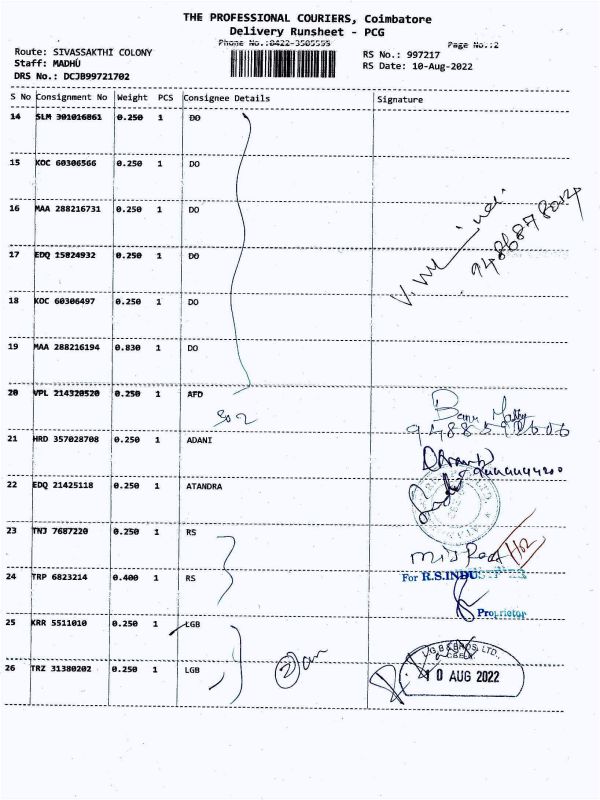 THE PROFESSIONAL COURIERS, Coimbatore
Delivery Runsheet - PCG
Phone No.:0422-3505555
Page No.:2
Route: SIVASSAKTHI COLONY
RS No.: 997217
Staff: MADHU
RS Date: 10-Aug-2022
DRS No.: DCJB99721702
S No Consignment No Weight PCS Consignee Details Signature
14 SLM 301016861 0.250 1 DO
15 KOC 60306566 0.250 1 DO
16 MAA 288216731 0.250 1 DO
17 EDQ 15824932 0.250 1 DO
18 KOC 60306497 0.250 1 DO
19 MAA 288216194 0.830 1 DO
20 VPL 214320520 0.250 1 AFD
21 HRD 357028708 0.250 1 ADANI
22 EDQ 21425118 0.250 1 ATANDRA
23 TNJ 7687220 0.250 1 RS
24 TRP 6823214 0.400 1 RS
For R.S.INDUS
Proprietor
25 KRR 5511010 0.250 1 LGB
L.G.B & BROS. LTD.
26 TRZ 31380202 0.250 1 LGB
10 AUG 2022